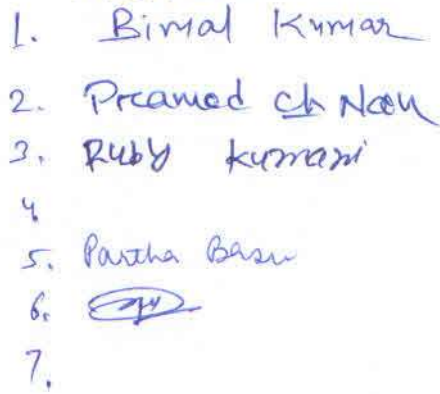 1. Bimal Kumar
2. Pramod Ch
3. Ruby Kumari
4.
5. Partha Basu
6.
7.